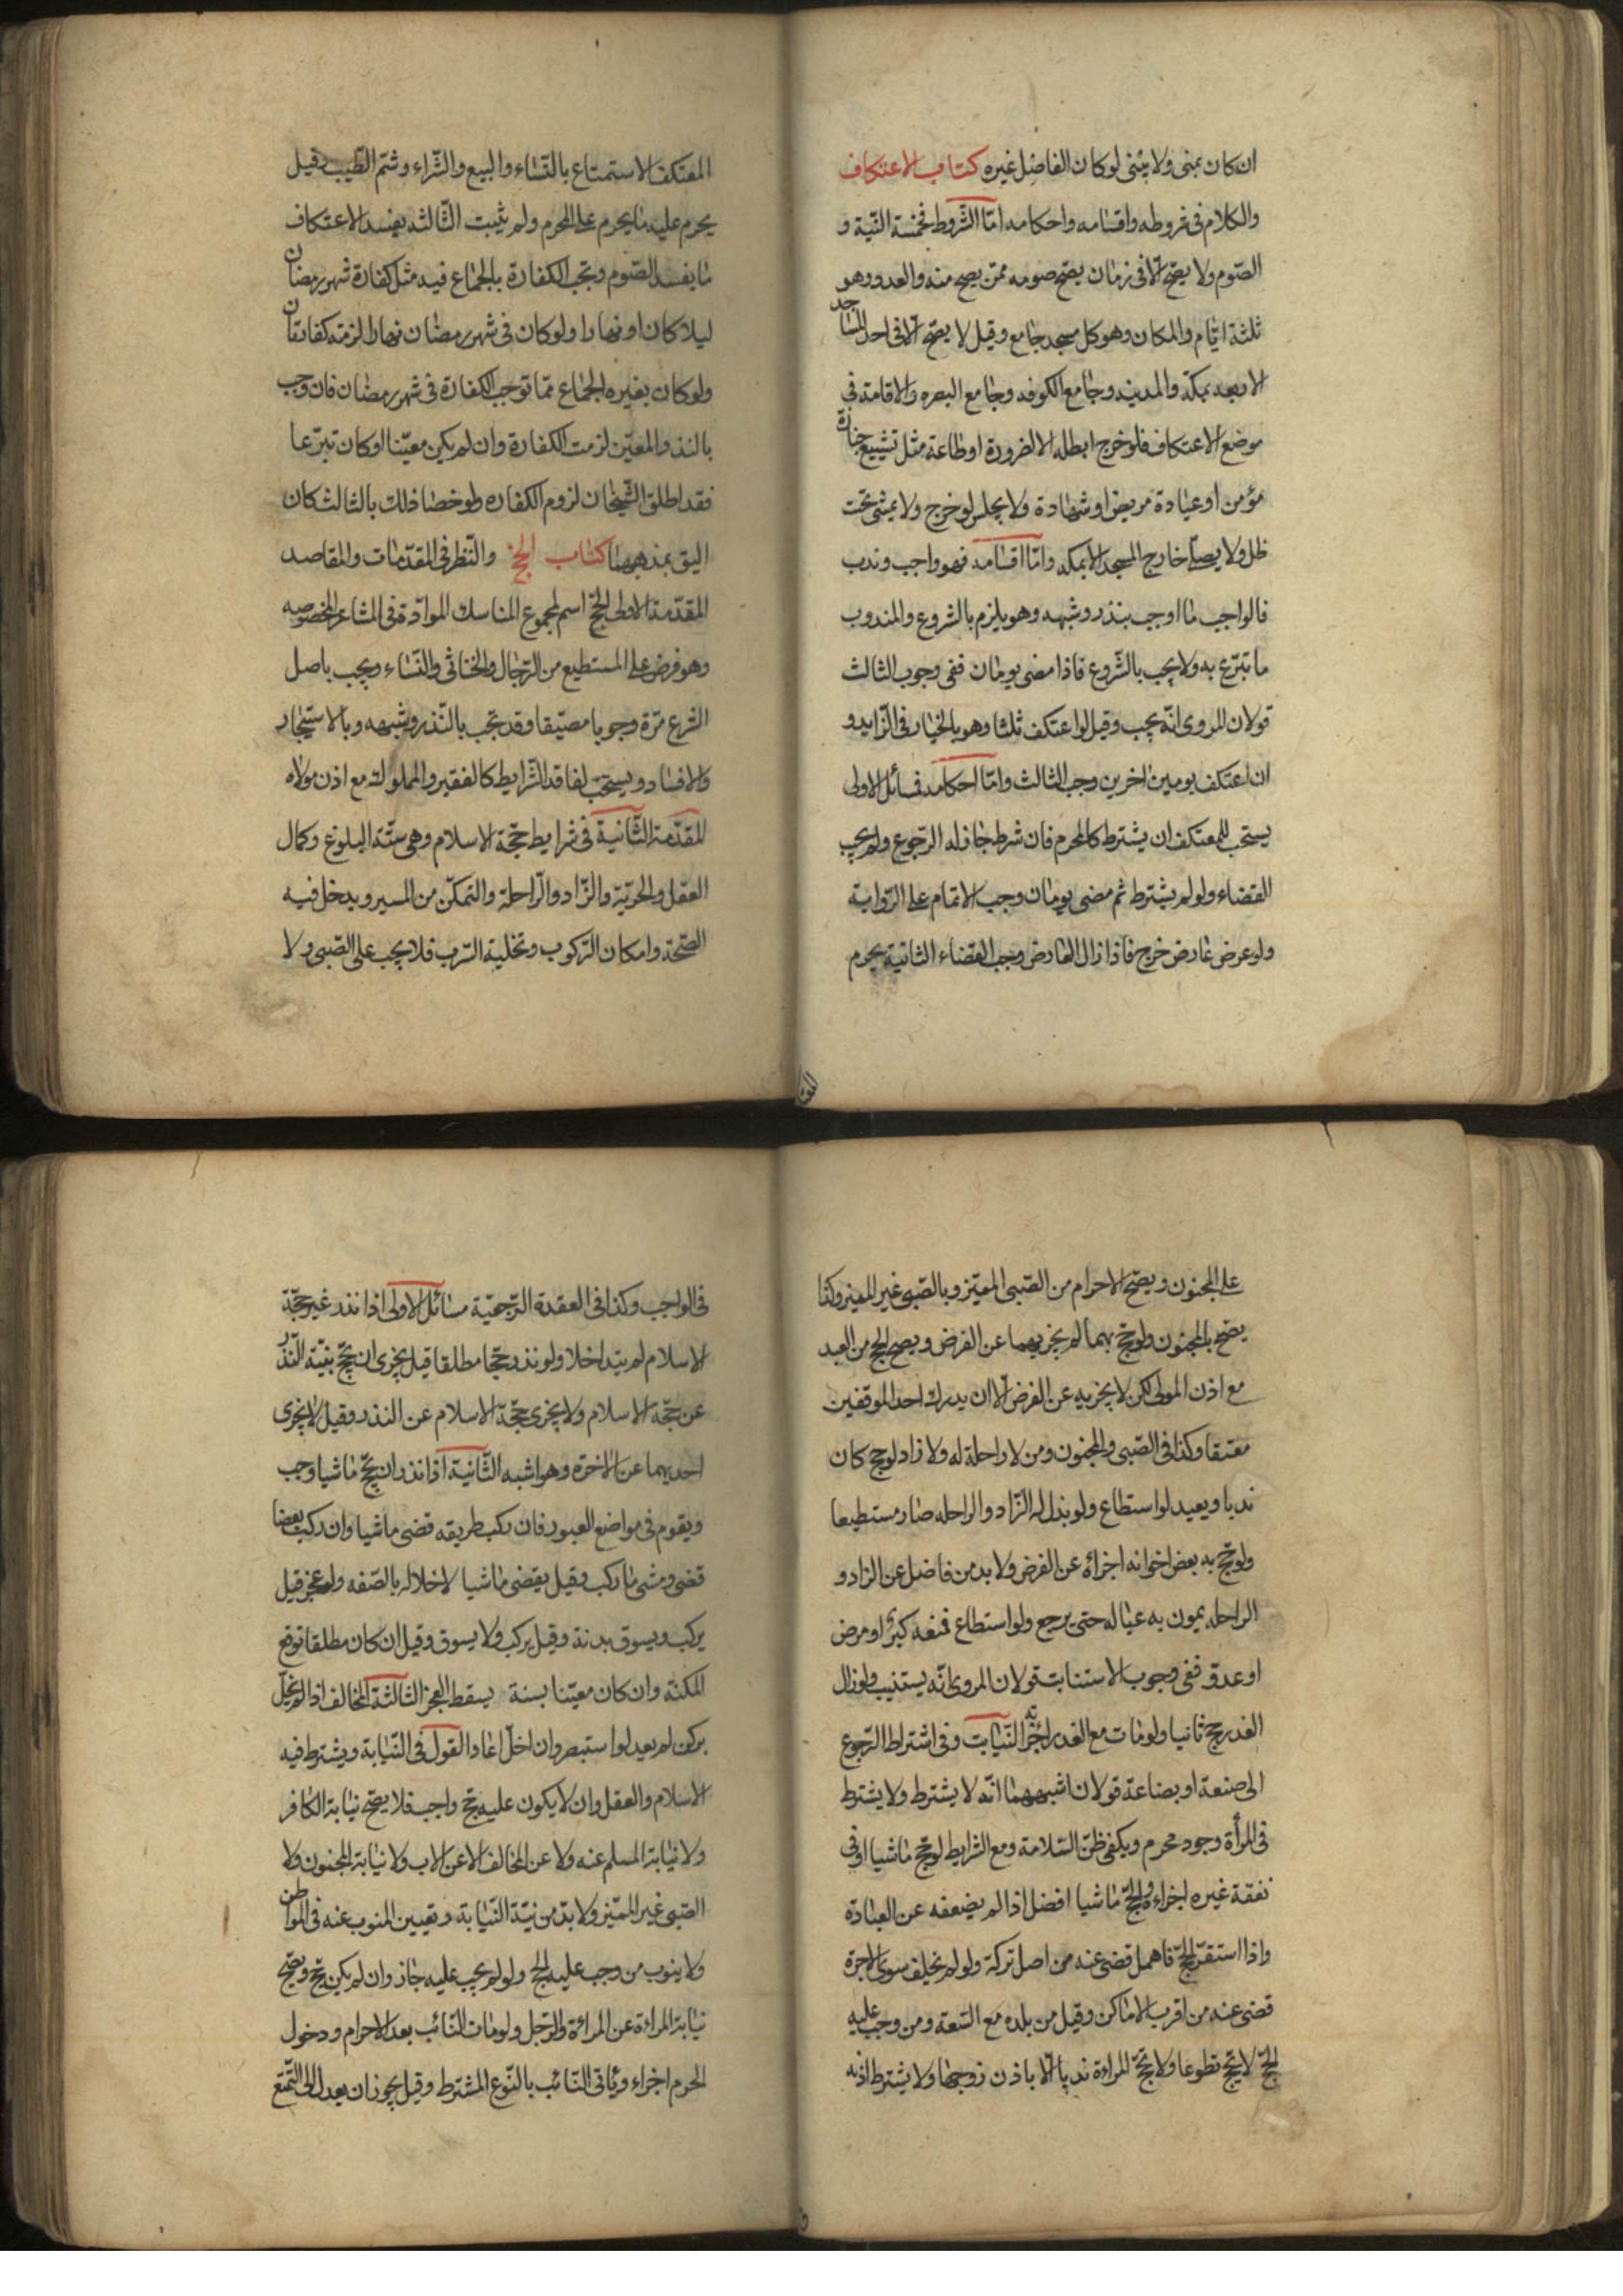 ان كان بمنى ولا يبنى لو كان الفاصل غيره كتاب الاعتكاف
والكلام فى شروطه واقسامه واحكامه امّا الشّروط فخمسة النّيّة و
الصّوم ولا يصحّ الّا فى زمان يصحّ صومه ممّن يصح منه والعدد وهو
ثلثة ايّام والمكان وهو كل مسجد جامع وقيل لا يصحّ الّا فى احد المساجد
الاربعه بمكّة والمدينه وجامع الكوفه وجامع البصره والاقامة فى
موضع الاعتكاف فلو خرج ابطله الا لضرورة او طاعة مثل تشييع جنازة
مؤمن او عيادة مريض او شهادة ولا يجلس لو خرج ولا يمشى تحت
ظل ولا يصلّى خارج المسجد الا بمكه وامّا اقسامه فهو واجب وندب
فالواجب ما اوجب بنذر وشبهه وهو يلزم بالشروع والمندوب
ما تبرّع به ولا يجب بالشّروع فاذا مضى يومان ففى وجوب الثالث
قولان المروى انّه يجب وقيل لو اعتكف ثلثا وهو بالخيار فى الزّايد و
ان اعتكف يومين اخرين وجب الثالث وامّا احكامه فمسائل الاولى
يستحب للمعتكف ان يشترط كالمحرم فان شرط جاز له الرّجوع ولم يجب
القضاء ولو لم يشترط ثم مضى يومان وجب الاتمام على الرّواية
ولو عرض عارض خرج فاذا زال العارض وجب القضاء الثانية يحرم
المعتكف الاستمتاع بالنّساء والبيع والشّراء وشمّ الطّيب وقيل
يحرم عليه ما يحرم على المحرم ولم يثبت الثّالثه يفسد الاعتكاف
ما يفسد الصّوم وتجب الكفارة بالجماع فيه مثل كفارة شهر رمضان
ليلا كان او نهارا ولو كان فى شهر رمضان نهارا لزمته كفارتان
ولو كان بغيره الجماع ممّا توجب الكفارة فى شهر رمضان فان وجب
بالنذر والمعيّن لزمت الكفارة وان لم يكن معيّنا او كان تبرّعا
فقد اطلق الشّيخان لزوم الكفاره ولو خصّا ذلك بالثالث كان
اليق بمذهبهما كتاب الحجّ والنّظر فى المقدّمات والمقاصد
المقدّمة الاولى الحجّ اسم لمجموع المناسك الموادّة فى المشاعر المخصوصه
وهو فرض على المستطيع من الرّجال والخناثى والنّساء ويجب باصل
الشرع مرّة وجوبا مضيّقا وقد تجب بالنّذر وشبهه وبالاستيجار
والافساد ويستحب لفاقد الشّرايط كالفقير والمملوك مع اذن مولاه
المقدّمة الثّانية فى شرايط حجّة الاسلام وهى ستّة البلوغ وكمال
العقل والحريّة والزّاد والرّاحلة والتمكّن من المسير ويدخل فيه
الصّحة وامكان الرّكوب وتخلية السّرب فلا يجب على الصّبى ولا
على المجنون ويصحّ الاحرام من الصّبى المميّز وبالصّبى غير المميز وكذا
يصح بالمجنون ولو حجّ بهما لم يجز بهما عن الفرض ويصح الحج من العبد
مع اذن المولى لكن لا يجزيه عن الفرض الّا ان يدرك احد الموقفين
معتقا وكذا فى الصّبى والمجنون ومن لا راحلة له ولا زاد لو حج كان
ندبا ويعيد لو استطاع ولو بذل له الزّاد والراحله صار مستطيعا
ولو حجّ به بعض اخوانه اجزاه عن الفرض ولا بد من فاضل عن الزاد و
الراحله يمون به عياله حتى يرجع ولو استطاع فمنعه كبر او مرض
او عدوّ ففى وجوب الاستنابة قولان المروى انّه يستنيب ولو زال
العذر حج ثانيا ولو مات مع العذر اجزأته النّيابت وفى اشتراط الرّجوع
الى صنعة او بضاعة قولان اشبههما انّه لا يشترط ولا يشترط
فى المرأة وجود محرم ويكفى ظنّ السّلامة ومع الشّرايط لو حجّ ماشيا او فى
نفقة غيره اجزاءه والحجّ ماشيا افضل اذا لم يضعفه عن العبادة
واذا استقرّ الحجّ فاهمل قضى عنه من اصل تركة ولو لم يخلف سوى الاجرة
قضى عنه من اقرب الاماكن وقيل من بلده مع السّعة ومن وجب عليه
الحجّ لا يحج تطوعا ولا تحجّ المراءة ندبا الّا باذن زوجها ولا يشترط اذنه
فى الواجب وكذا فى العقدة الرّجعيّة مسائل الاولى اذا نذر غير حجّة
الاسلام لم يتداخلا ولو نذر حجّا مطلقا قيل يجزى ان حجّ بنيّة النّذر
عن حجّة الاسلام ولا يجزى حجّة الاسلام عن النذر وقيل لا يجزى
احديهما عن الاخرة وهو اشبه الثّانية اذا نذر ان يحجّ ماشيا وجب
ويقوم فى مواضع العبور فان ركب طريقه قضى ماشيا وان ركب بعضا
قضى ومشى ما ركب وقيل يقضى ماشيا لاخلاله بالصّفه ولو عجز قيل
يركب ويسوق بدنة وقيل يركب ولا يسوق وقيل ان كان مطلقا توقع
المكنة وان كان معيّنا بسنة يسقط العجز الثالثة المخالف اذا لم يخلّ
بركن لم يعد لو استبصر وان اخلّ اعاد القول فى النّيابة ويشترط فيه
الاسلام والعقل وان لا يكون عليه حج واجب فلا يصحّ نيابة الكافر
ولا نيابة المسلم عنه ولا عن المخالف الا عن الاب ولا نيابة المجنون ولا
الصّبى غير المميّز ولا بدّ من نيّة النّيابة وتعيين المنوب عنه فى المواطن
ولا ينوب من وجب عليه الحج ولو لم يجب عليه جاز وان لم يكن حج ويصحّ
نيابة المراءة عن المراءة والرّجل ولو مات النّائب بعد الاحرام ودخول
الحرم اجزاء ويأتى النّائب بالنّوع المشترط وقيل يجوز ان يعدل الى التّمتع